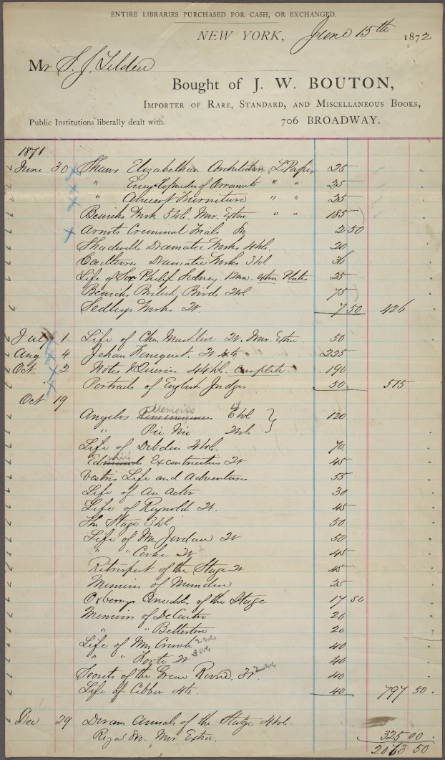 ENTIRE LIBRARIES PURCHASED FOR CASH, OR EXCHANGED.
NEW YORK, June 15th 1872
Mr S. J. Tilden
Bought of J. W. BOUTON,
IMPORTER OF RARE, STANDARD, AND MISCELLANEOUS BOOKS,
Public Institutions liberally dealt with. 706 BROADWAY.
1871
June 30 Shaws Elizabethan Architecture L Paper 25
" Encyclopedia of Ornaments " " 25
" Ancient Furniture " " 25
Bewicks Work 5 vol. 185
Criminal Trials 2 50
Shadwell Dramatic Works 4 vol. 20
Dramatic Works 3 vol 36
Life of Sir Philip Sidney 25
Bewicks British Birds 2 vol. 75
Sedleys Works 2v 7 50 426
July 1 Life of Chs Mathews 50
Aug 4 225
Oct. 2 Notes & Queries 44 vol. Complete 190
Portraits of English Judges 50 515
Oct 19
Angelos Memoirs 120
" Pic Nic
Life of Dibdin 4 vol. 70
Eccentricities 2v 45
Life and Adventures 55
Life of An Actor 30
Life of Reynold 2v. 45
The Stage 50
Life of Mrs Jordan 2v 50
" " Cooke 2v 45
Retrospect of the Stage 2v 45
Memoirs of Munden 25
Oxberry Anecdotes of the Stage 17 50
Memoirs of De Castro 20
" " Betterton 20
Life of 40
" " Foote 2v 40
Secrets of the Green Room 40
Life of Cibber 40 797 50
Dec 29 Annals of the Stage 4 vol.
325 00
2063 50